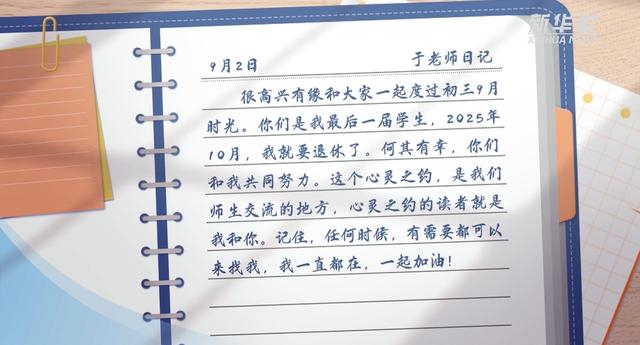 新华社
XINHUA NEWS
9月2日 于老师日记
很高兴有缘和大家一起度过初三9月
时光。你们是我最后一届学生，2025年
10月，我就要退休了。何其有幸，你们
和我共同努力。这个心灵之约，是我们
师生交流的地方，心灵之约的读者就是
我和你。记住，任何时候，有需要都可以
来找我，我一直都在，一起加油！